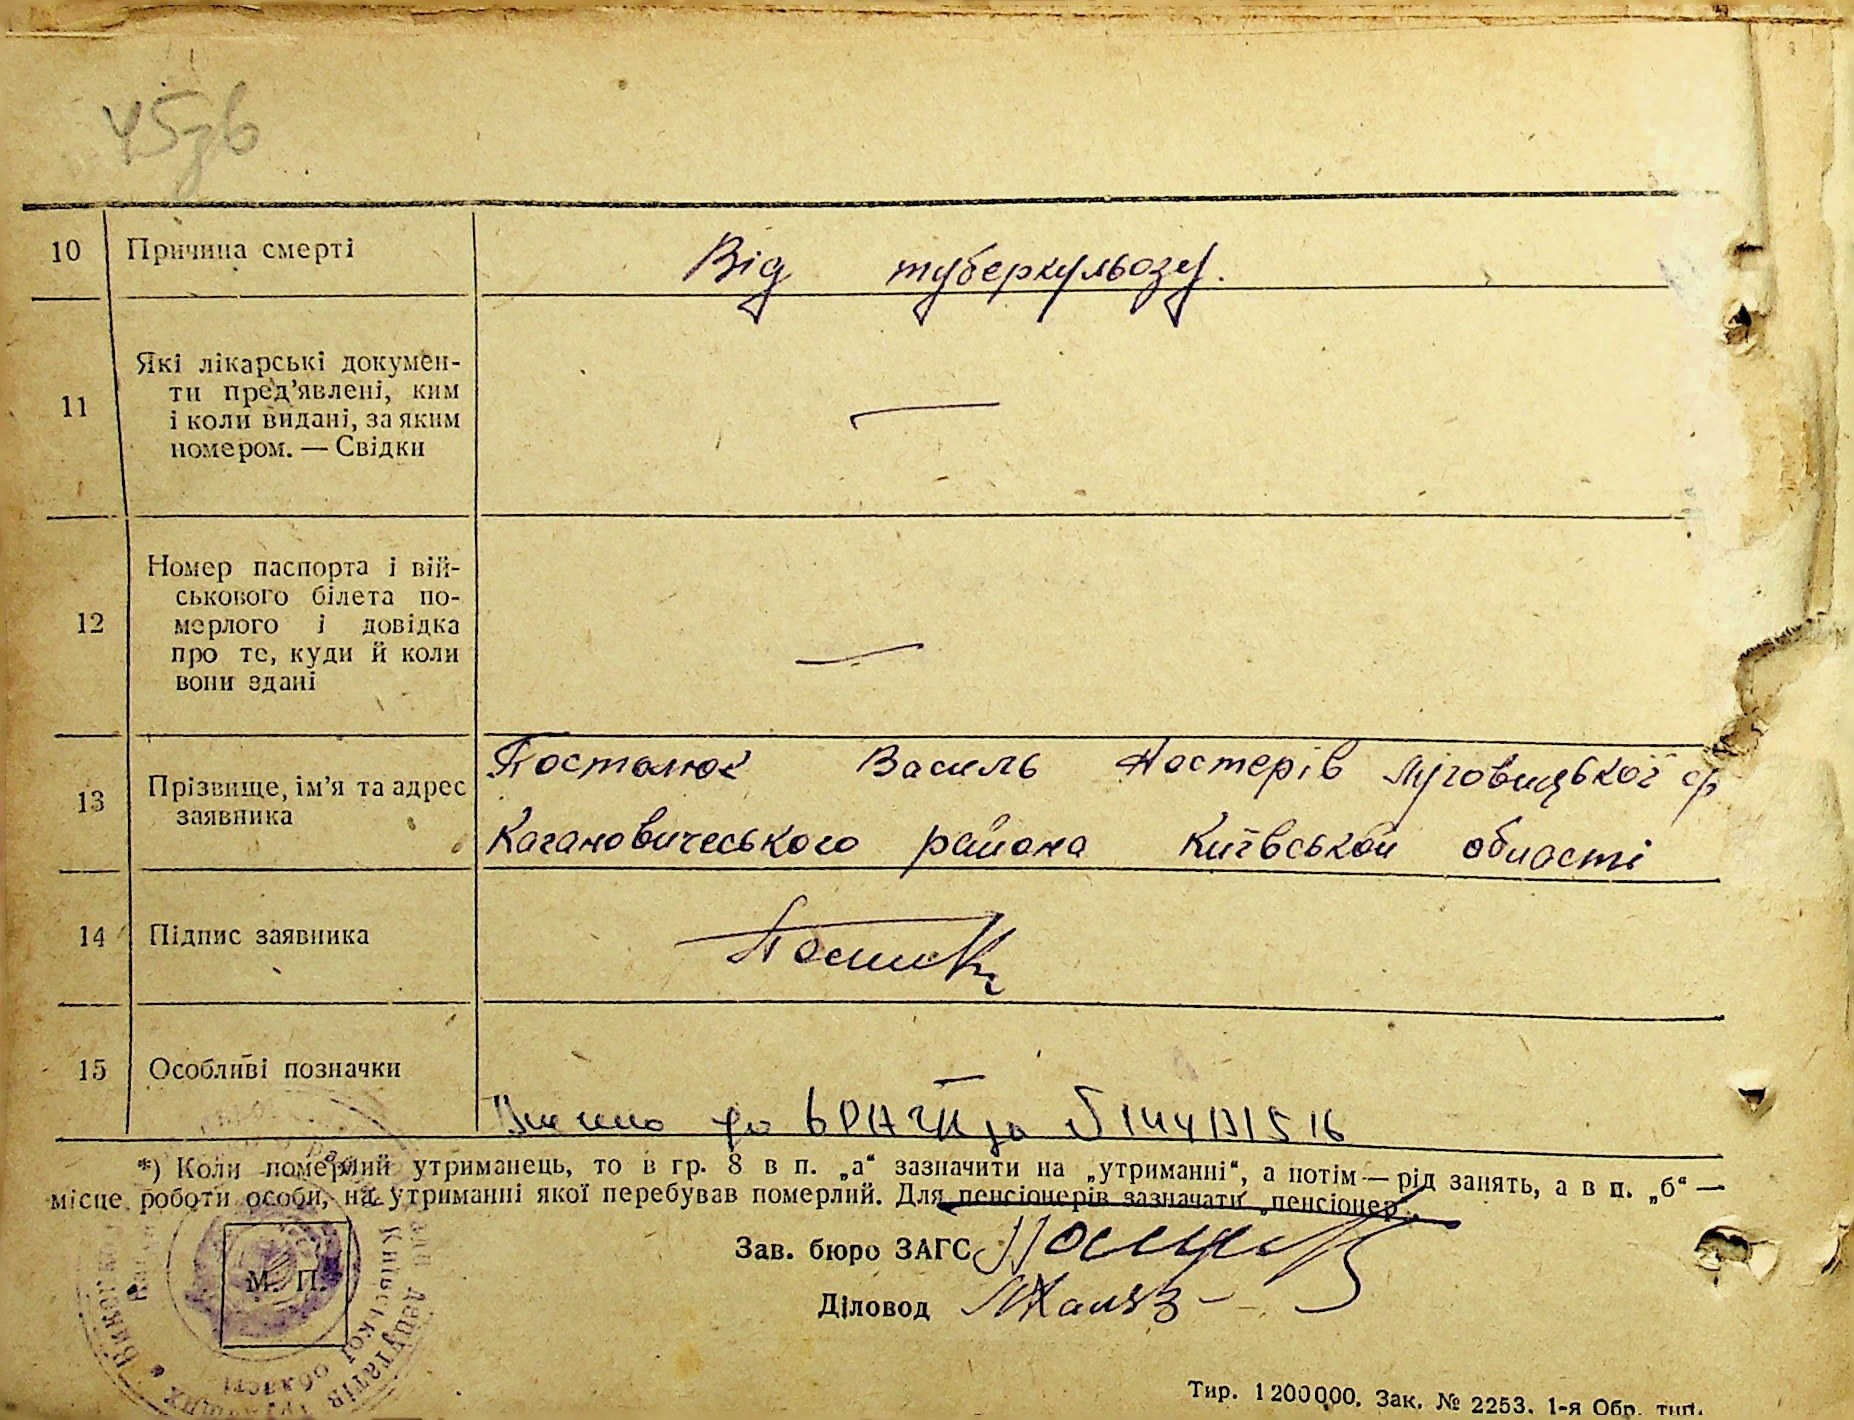 10 Причина смерті Від туберкульозу.
11 Які лікарські докумен-
ти пред'явлені, ким
і коли видані, за яким
номером. — Свідки —
12 Номер паспорта і вій-
ськового білета по-
мерлого і довідка
про те, куди й коли
вони здані —
13 Прізвище, ім'я та адрес
заявника
Постолюк Василь Луговицької ср
Кагановичеського района Київськой області
14 Підпис заявника
15 Особливі позначки
до
*) Коли померлий утриманець, то в гр. 8 в п. „а“ зазначити на „утриманні“, а потім — рід занять, а в п. „б“ —
місце роботи особи, на утриманні якої перебував померлий. Для пенсіонерів зазначати „пенсіонер“.
Зав. бюро ЗАГС
М. П.
Діловод
Київської області
депутатів трудящих
Тир. 1200000. Зак. № 2253. 1-я Обр. тип.